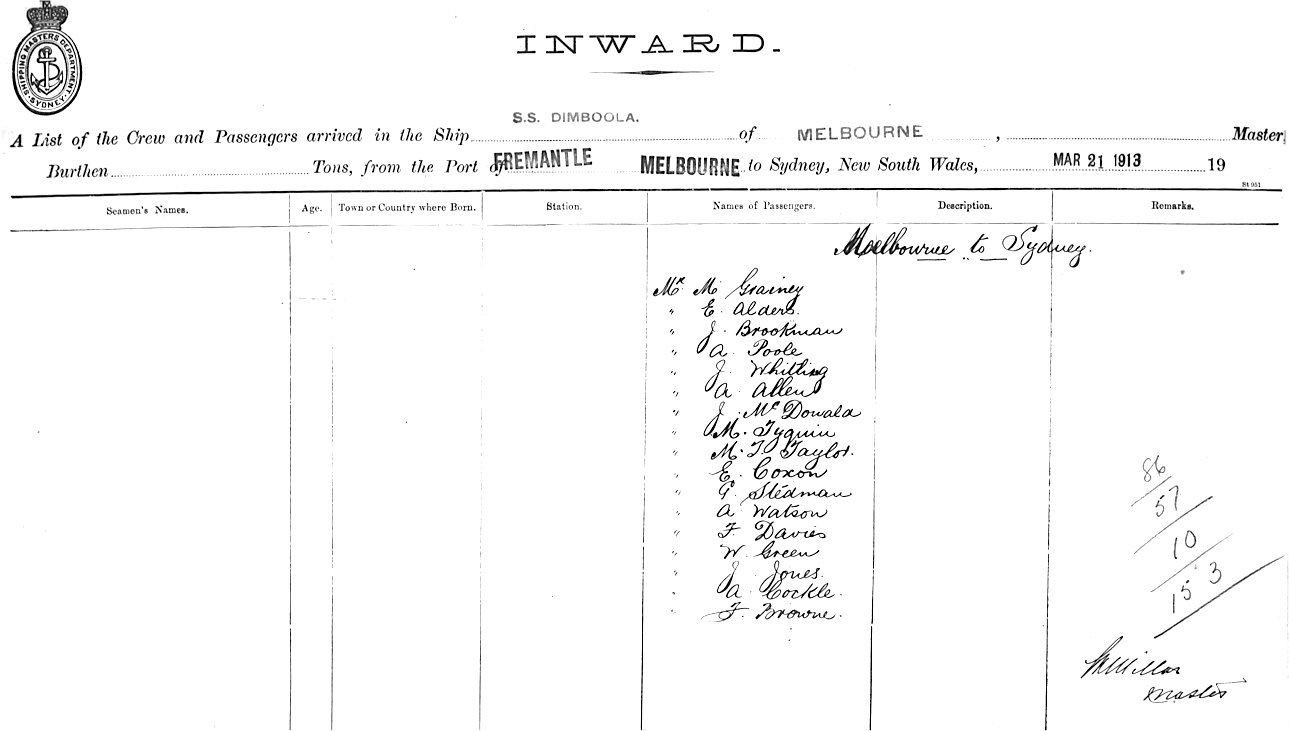 SHIPPING MASTERS DEPARTMENT. SYDNEY.
INWARD.
S.S. DIMBOOLA.
A List of the Crew and Passengers arrived in the Ship of MELBOURNE, Master
Burthen Tons, from the Port of FREMANTLE MELBOURNE to Sydney, New South Wales, MAR 21 1913 19
St 951
Seamen's Names. Age. Town or Country where Born. Station. Names of Passengers. Description. Remarks.
Melbourne to Sydney.
Mr M Grainey
" E. Alders.
" J. Brookman
" A. Poole
" J. Whitling
" A. Allen
" J. McDowald
" M. Tyquin
" M. T. Taylor.
" E. Coxon
" G. Stedman
" A Watson
" F. Davies
" W. Green
" J. Jones.
" A. Cockle.
" F. Browne.
86
57
10
153
Millar
Master